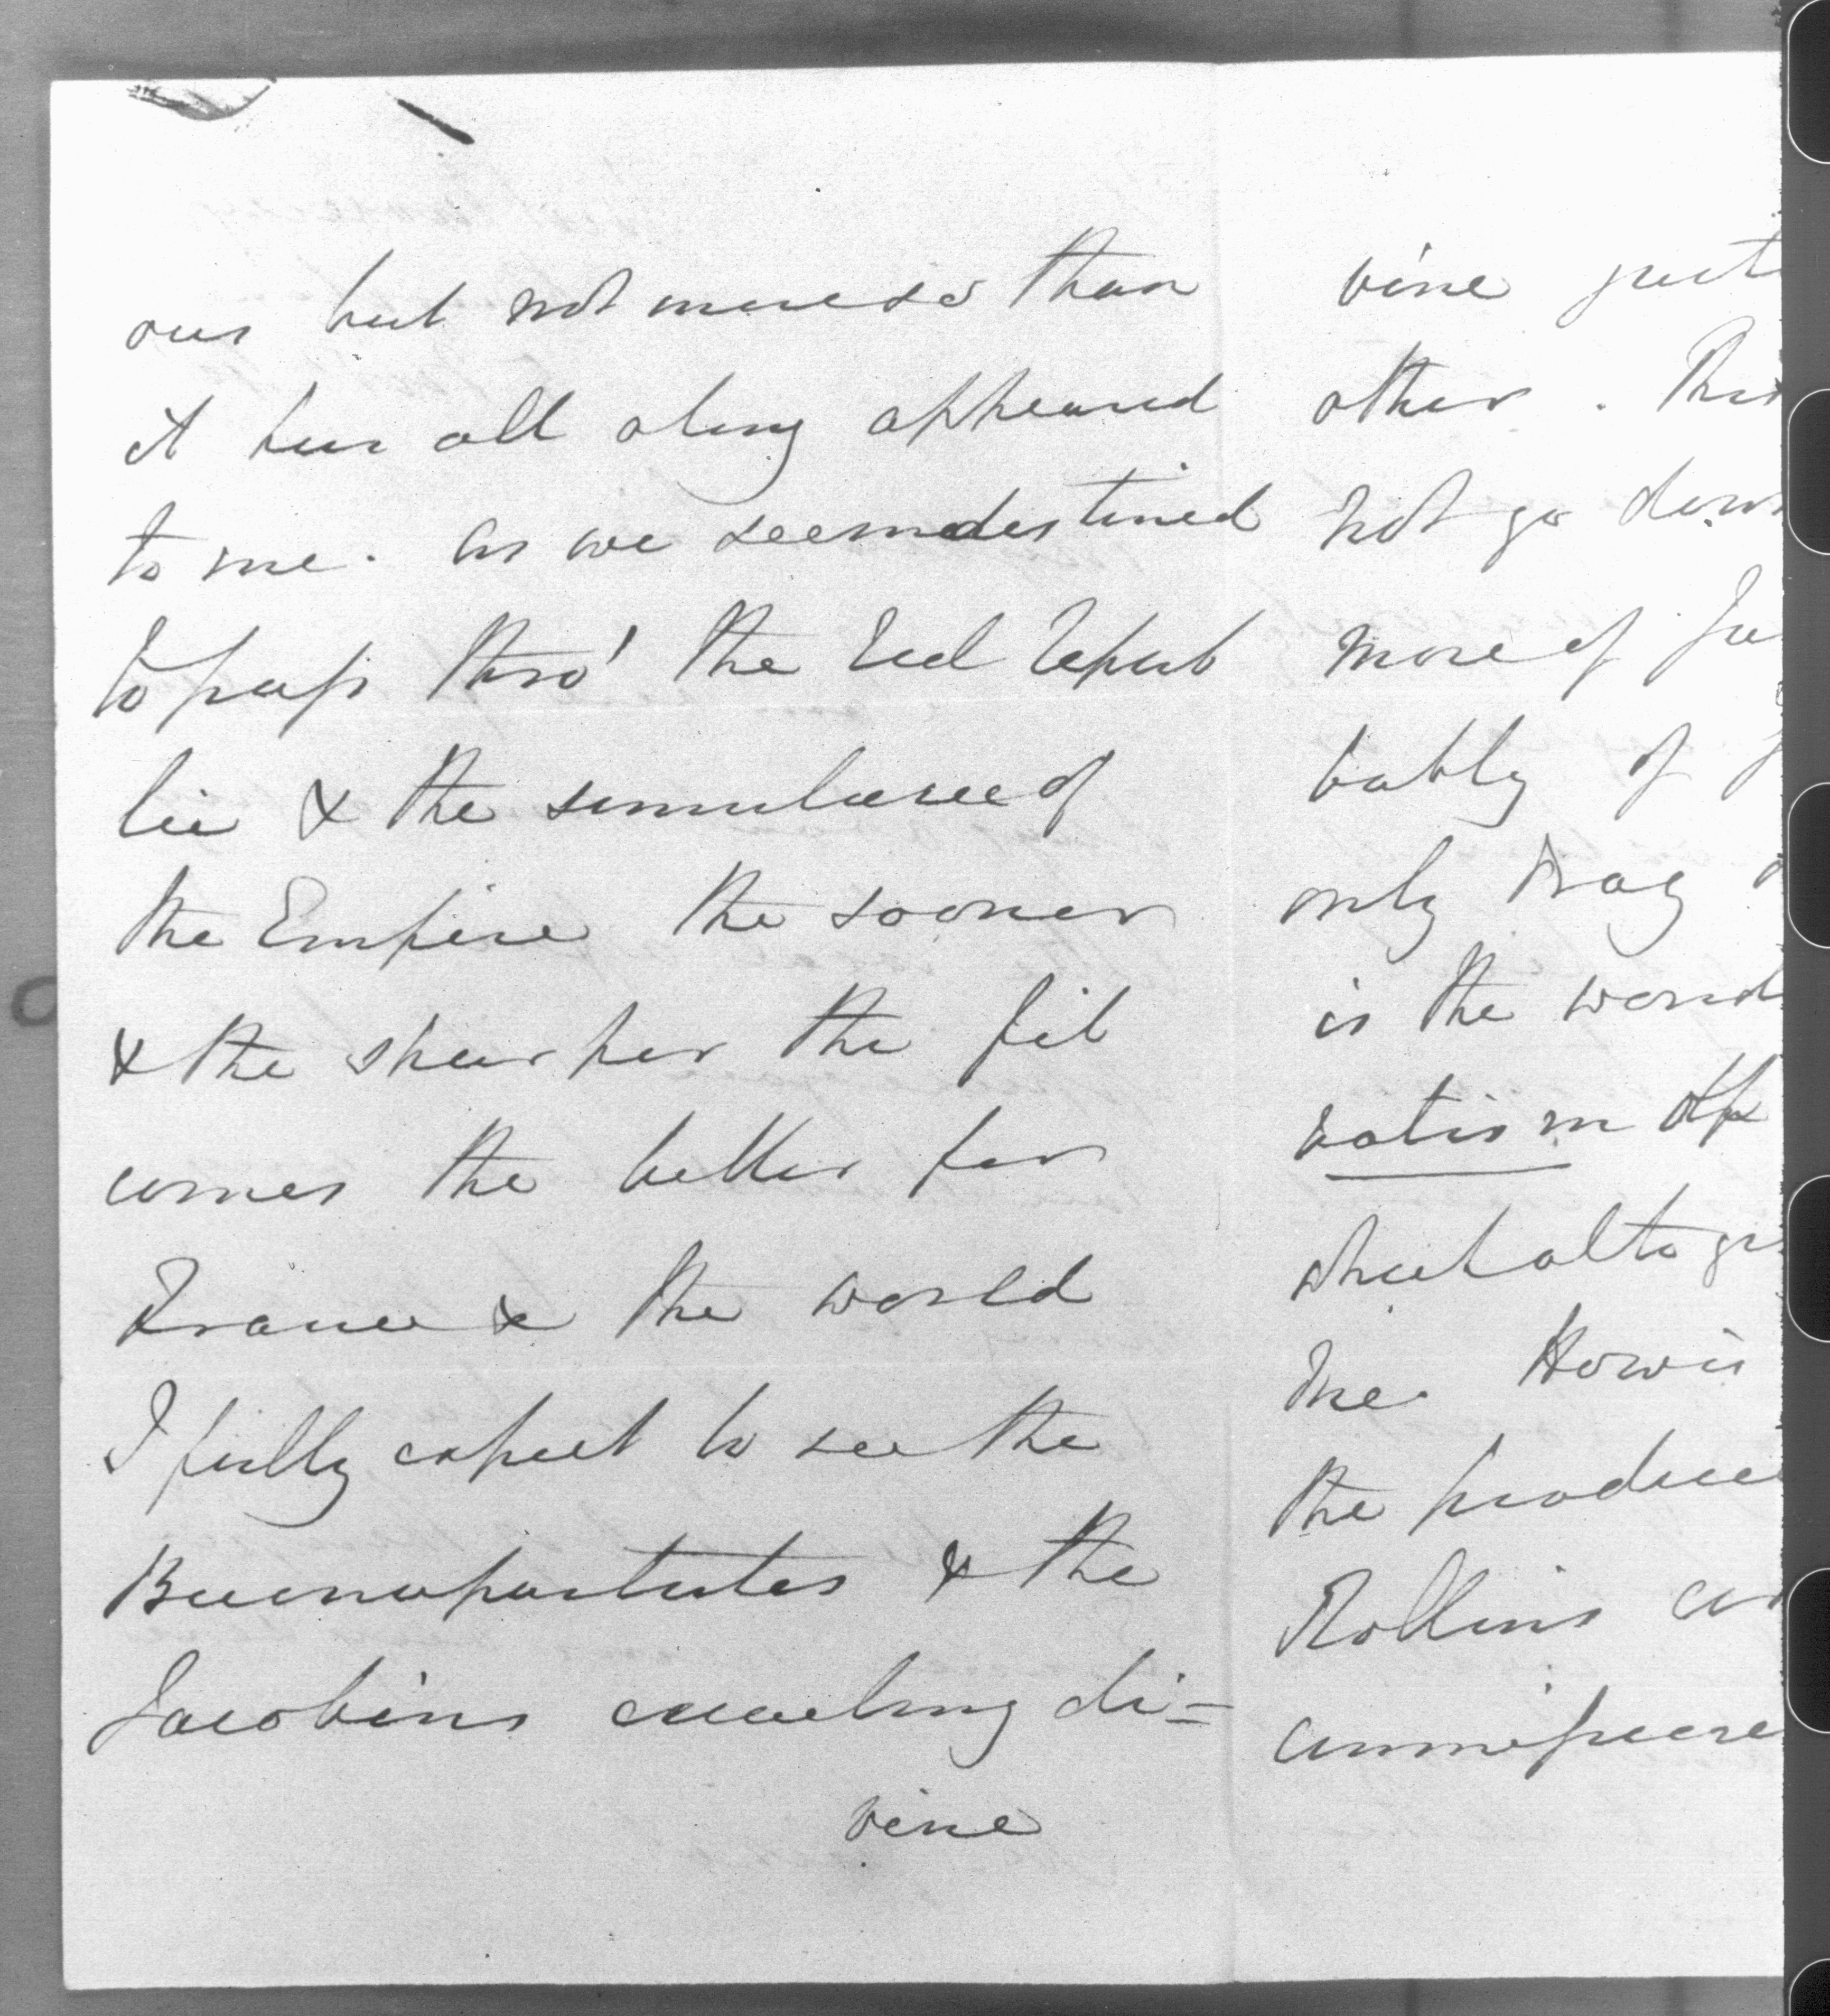 ous but not more so than
it has all along appeared
to me. As we seem destined
to pass thro' the Red Repub
lic & the simulacre of
the Empire the sooner
& the sharper the fit
comes the better for
France & the world
I fully expect to see the
Buonapartistes & the
Jacobins courting di=
vine
vine
other. This
not go down
more of
bably of
only drag
is the word
vatism
altog
me. How is
the produce
Rollins